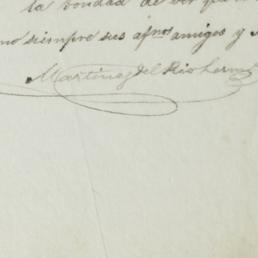 la bondad de ver que
mo siempre sus afmos amigos y
Martínez del Rio Herm